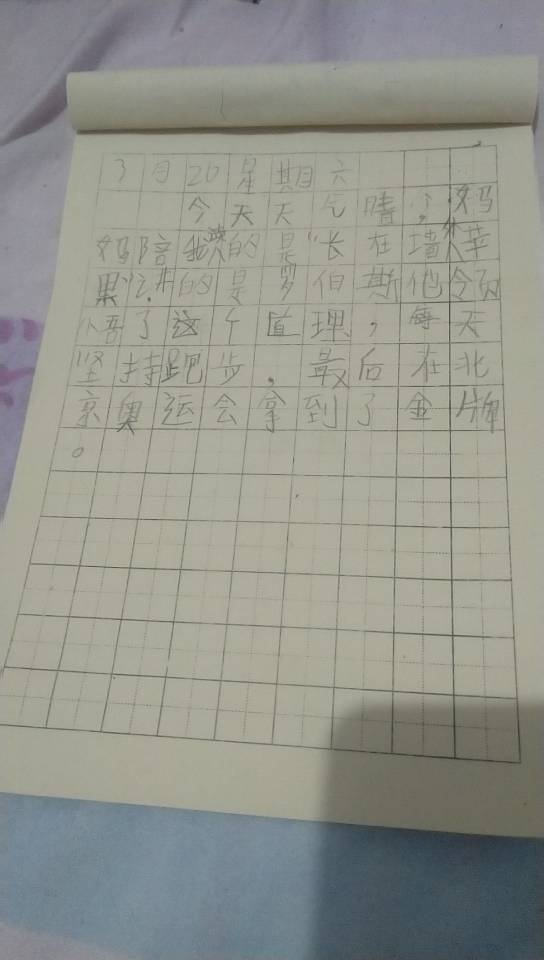 3月20星期六
今天天气晴,妈
妈陪我读的是“长在墙外苹
果”,讲的是罗伯斯他领
悟了这个道理,每天
坚持跑步,最后在北
京奥运会拿到了金牌
。